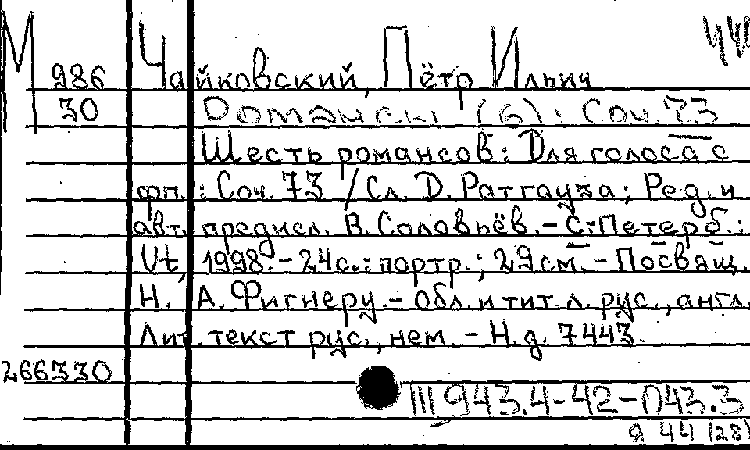 М 986 Чайковский, Пётр Ильич
30 Романсы (6): Соч. 73
Шесть романсов: Для голоса с
фп.: Соч. 73 / Сл. Д. Ратгауза; Ред. и
авт. предисл. В. Соловьёв. - С.-Петерб.:
Ut, 1998. - 24с.: портр.; 29см. - Посвящ.
Н. А. Фигнеру. - Обл. и тит. л. рус., англ.
Лит. текст рус., нем. - Н.д. 7443
266330
III 943.4-42-043.3
Я 44 (28)